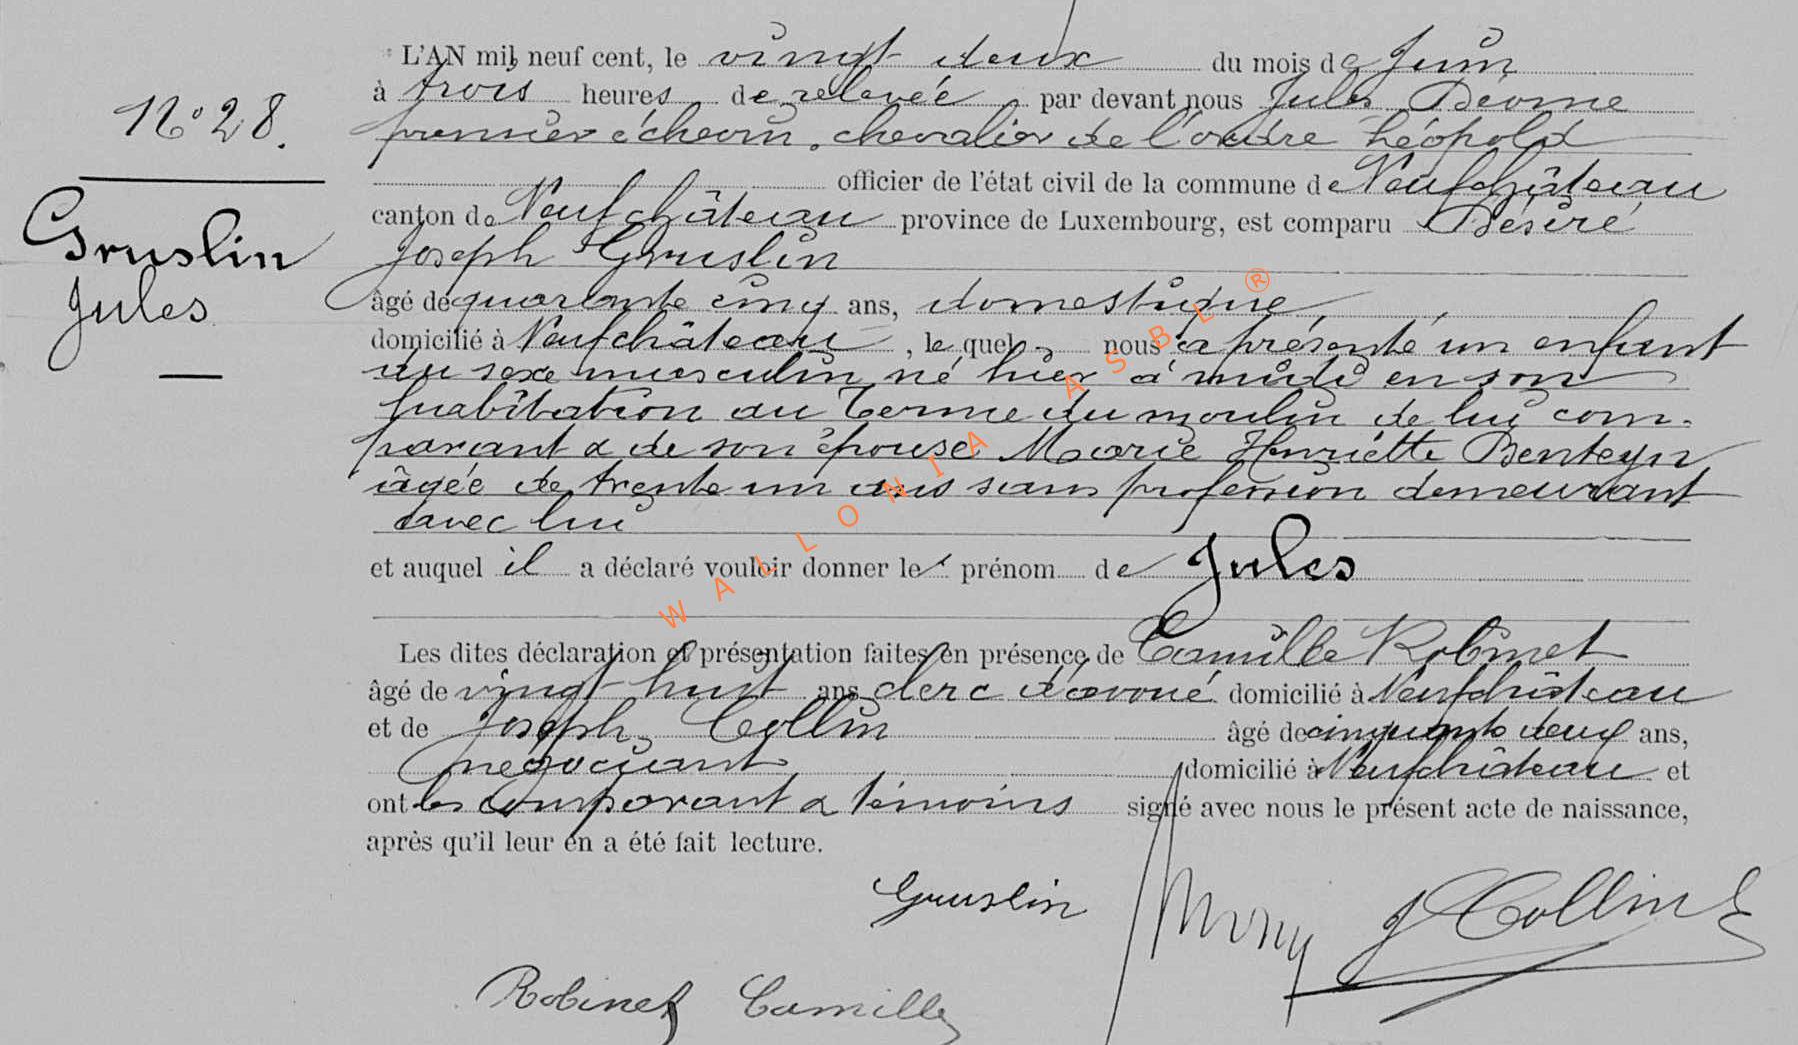 N° 28.
Gruslin
Jules
L'AN mil neuf cent, le vingt deux du mois de Juin
à trois heures de relevée par devant nous Jules
premier échevin, chevalier de l'ordre Léopold
officier de l'état civil de la commune de Neufchâteau
canton de Neufchâteau province de Luxembourg, est comparu Désiré
Joseph Gruslin
âgé de quarante cinq ans, domestique
domicilié à Neufchâteau, le quel nous a présenté un enfant
du sexe masculin, né hier à midi en son
habitation au Terme du moulin de lui com-
parant & de son épouse Marie Henriette Benteyn
âgée de trente un ans sans profession demeurant
avec lui
et auquel il a déclaré vouloir donner le prénom de Jules
Les dites déclaration et présentation faites en présence de Camille Robinet
âgé de vingt huit ans clerc d'avoué domicilié à Neufchâteau
et de Joseph Collin âgé de cinquante deux ans,
négociant domicilié à Neufchâteau et
ont les comparant & témoins signé avec nous le présent acte de naissance,
après qu'il leur en a été fait lecture.
Gruslin
J Collin
Robinet Camille
WALLONIA ASBL ®